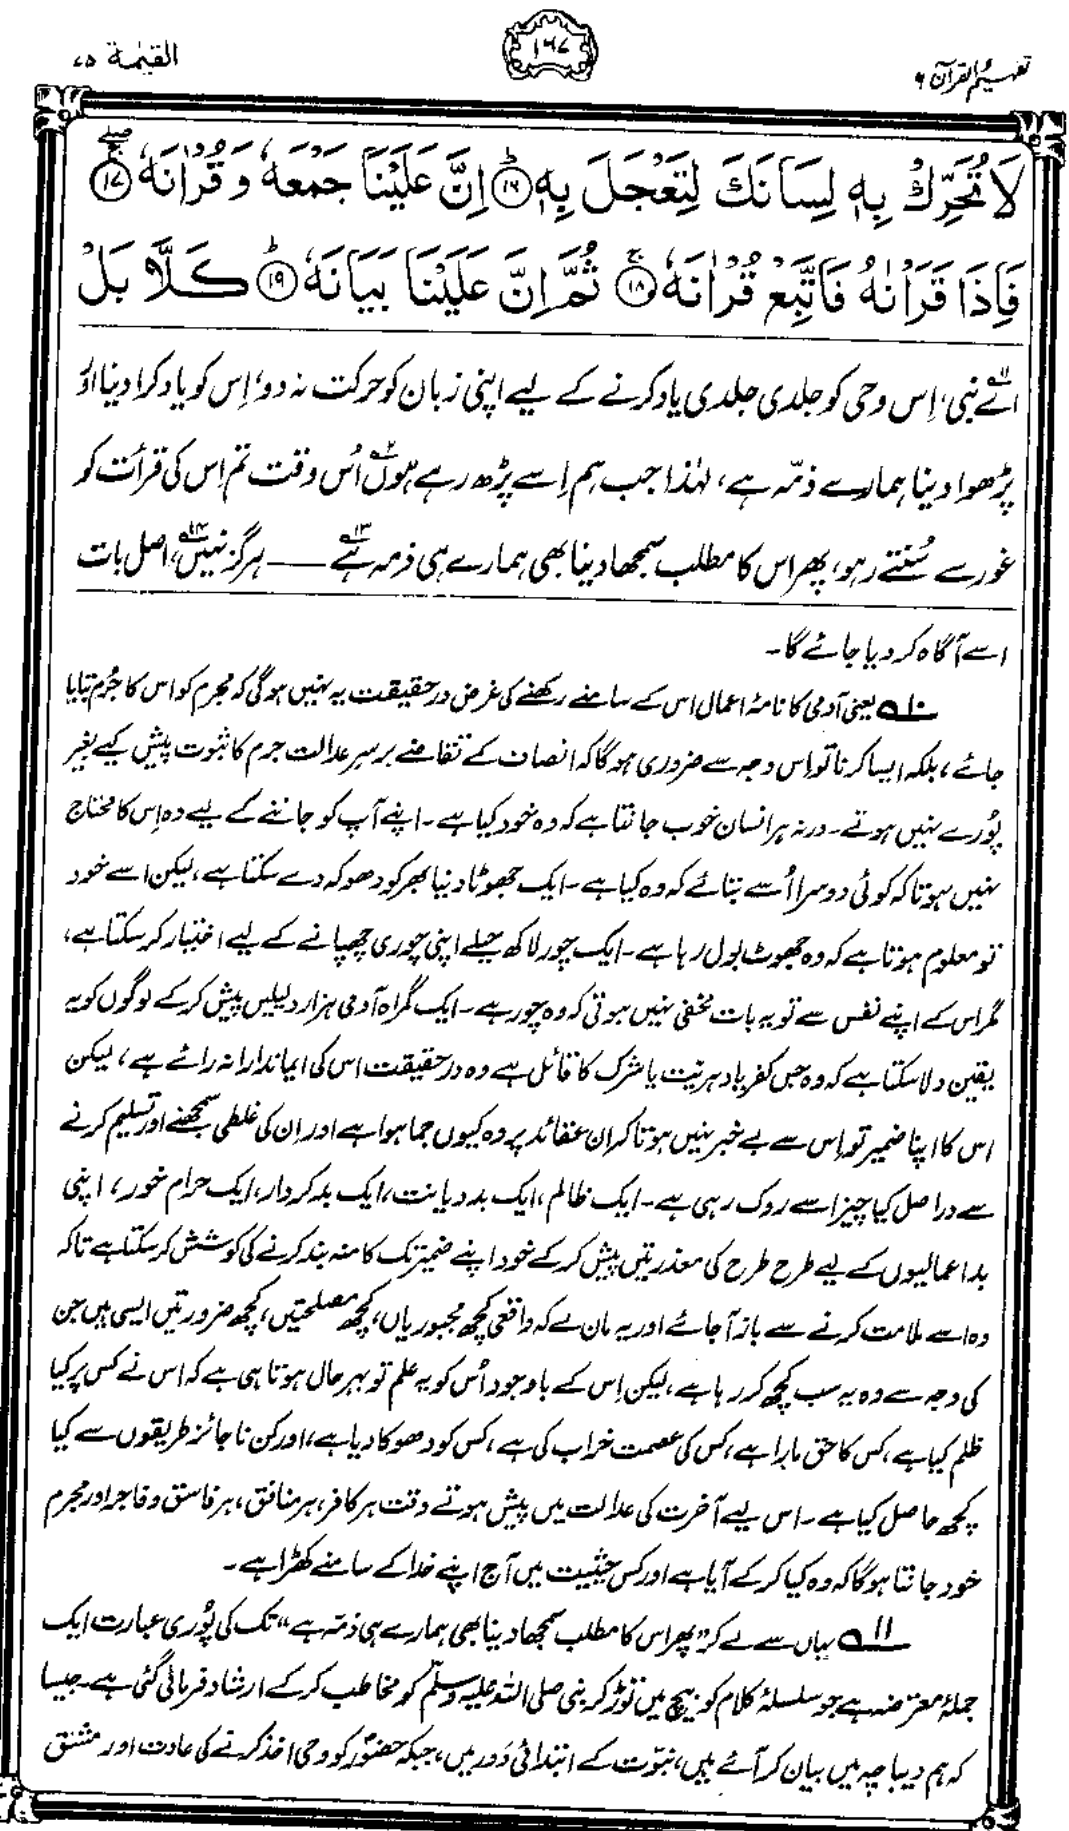 تفہیم القرآن ۶
۱۶۷
القیٰمۃ ۷۵
لَا تُحَرِّكْ بِهٖ لِسَانَكَ لِتَعْجَلَ بِهٖ ۱۶ اِنَّ عَلَيْنَا جَمْعَهٗ وَ قُرْاٰنَهٗ ۱۷
فَاِذَا قَرَاْنٰهُ فَاتَّبِعْ قُرْاٰنَهٗ ۱۸ ثُمَّ اِنَّ عَلَيْنَا بَيَانَهٗ ۱۹ كَلَّا بَلْ
اے نبیؐ، اِس وحی کو جلدی جلدی یاد کرنے کے لیے اپنی زبان کو حرکت نہ دو، اِس کو یاد کرا دینا اور
پڑھوا دینا ہمارے ذمّہ ہے، لہٰذا جب ہم اِسے پڑھ رہے ہوں۱۲ اُس وقت تم اس کی قرأت کو
غور سے سُنتے رہو، پھر اس کا مطلب سمجھا دینا بھی ہمارے ہی ذمہ ہے۱۳ ــــ ہرگز نہیں۱۴، اصل بات
اسے آگاہ کر دیا جائے گا۔
۱۰؎ یعنی آدمی کا نامۂ اعمال اس کے سامنے رکھنے کی غرض درحقیقت یہ نہیں ہوگی کہ مجرم کو اس کا جُرم بتایا
جائے، بلکہ ایسا کرنا تو اِس وجہ سے ضروری ہوگا کہ انصاف کے تقاضے برسرِ عدالت جرم کا ثبوت پیش کیے بغیر
پُورے نہیں ہوتے۔ ورنہ ہر انسان خوب جانتا ہے کہ وہ خود کیا ہے۔ اپنے آپ کو جاننے کے لیے وہ اِس کا محتاج
نہیں ہوتا کہ کوئی دوسرا اُسے بتائے کہ وہ کیا ہے۔ ایک جھوٹا دنیا بھر کو دھوکہ دے سکتا ہے، لیکن اسے خود
تو معلوم ہوتا ہے کہ وہ جھوٹ بول رہا ہے۔ ایک چور لاکھ حیلے اپنی چوری چھپانے کے لیے اختیار کر سکتا ہے،
مگر اس کے اپنے نفس سے تو یہ بات مخفی نہیں ہوتی کہ وہ چور ہے۔ ایک گمراہ آدمی ہزار دلیلیں پیش کرکے لوگوں کو یہ
یقین دلا سکتا ہے کہ وہ جس کفر یا دہریّت یا شرک کا قائل ہے وہ درحقیقت اس کی ایماندارانہ رائے ہے، لیکن
اس کا اپنا ضمیر تو اِس سے بے خبر نہیں ہوتا کہ ان عقائد پر وہ کیوں جما ہوا ہے اور ان کی غلطی سمجھنے اور تسلیم کرنے
سے دراصل کیا چیز اسے روک رہی ہے۔ ایک ظالم، ایک بددیانت، ایک بدکردار، ایک حرام خور، اپنی
بداعمالیوں کے لیے طرح طرح کی معذرتیں پیش کر کے خود اپنے ضمیر تک کا منہ بند کرنے کی کوشش کر سکتا ہے تاکہ
وہ اسے ملامت کرنے سے باز آجائے اور یہ مان لے کہ واقعی کچھ مجبوریاں، کچھ مصلحتیں، کچھ ضرورتیں ایسی ہیں جن
کی وجہ سے وہ یہ سب کچھ کر رہا ہے، لیکن اِس کے باوجود اُس کو یہ علم تو بہرحال ہوتا ہی ہے کہ اس نے کس پر کیا
ظلم کیا ہے، کس کا حق مارا ہے، کس کی عصمت خراب کی ہے، کس کو دھوکا دیا ہے، اور کن ناجائز طریقوں سے کیا
کچھ حاصل کیا ہے۔ اس لیے آخرت کی عدالت میں پیش ہوتے وقت ہر کافر، ہر منافق، ہر فاسق و فاجر اور مجرم
خود جانتا ہوگا کہ وہ کیا کر کے آیا ہے اور کس حیثیت میں آج اپنے خدا کے سامنے کھڑا ہے۔
۱۱؎ یہاں سے لے کر ”پھر اس کا مطلب سمجھا دینا بھی ہمارے ہی ذمّہ ہے“ تک کی پُوری عبارت ایک
جملۂ معترضہ ہے جو سلسلۂ کلام کو بیچ میں توڑ کر نبی صلی اللہ علیہ وسلّم کو مخاطب کر کے ارشاد فرمائی گئی ہے۔ جیسا
کہ ہم دیباچہ میں بیان کر آئے ہیں، نبوّت کے ابتدائی دَور میں، جبکہ حضورؐ کو وحی اخذ کرنے کی عادت اور مشق